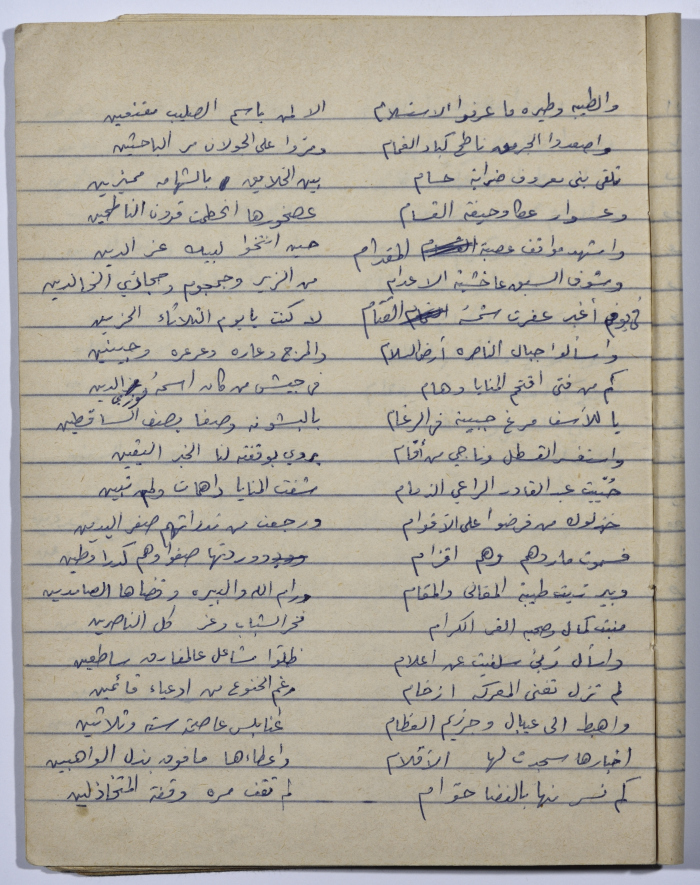 والطيبه وطيره ما عرفوا الاستسلام الا لمن باسم الصليب مقتنعين
واصعدوا الجرمق ناطح كباد الغمام ومروا على الجولان مر الباحثين
تلقى بني معروف ضرابة حسام بين الخلايق بالشهامه مميزين
وعسوار عطا وحيفة القسام عصخورها انحطمت قرون الناطحين
واستشهد مواقف عصبة المقدام حين انتخوا لبيك عز الدين
وشوف السبق عا خشبة الاعدام من الزير وجمجوم وحجازي الخالدين
يوم أغبر عفرت شمسه القتام لا كنت يا يوم الثلاثاء الحزين
واسألوا جبال الناصره أرض السلام والمرج وعاره وعرعره وجينين
كم من فتى اقتحم المنايا وهام في جيش من كان اسمه فوزي الدين
يا للأسف مرغ جبينه في الرغام بالبشونه وصفا بصف الساقطين
واستفسر القسطل وناجي من أقام يروي بوقفته لنا الخبر اليقين
حييت عبد القادر الراعي الذمام شقت المنايا داهات ولم تبين
خذلوك من فرضوا على الأقوام ورجعت من ندواتهم صفر اليدين
فسموت ماردهم وهم اقزام ووردتها صفوا وهم كدرا وطين
وبير زيت طيبة المغاني والمقام ورام الله والبيره وقضاها الصامدين
منبت كمال وصحبه الغر الكرام فخر الشباب وعز كل الناصرين
واسأل زكي سلفيت عن اعلام ظلوا مشاعل عالمفارق ساطعين
لم تزل تغني المعركه ارخام رغم الخنوع من ادعياء قائمين
واهبط الى عيبال وجرزيم العظام عنابلس عاصمة سته وثلاثين
اخبارها سجدت لها الأقلام واعطاءها ما فوق بذل الواهبين
كم نسر منها بالفضا حوام لم تقف مره وقفة المتخاذلين